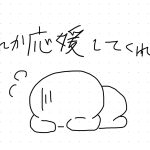 か応援してくれ